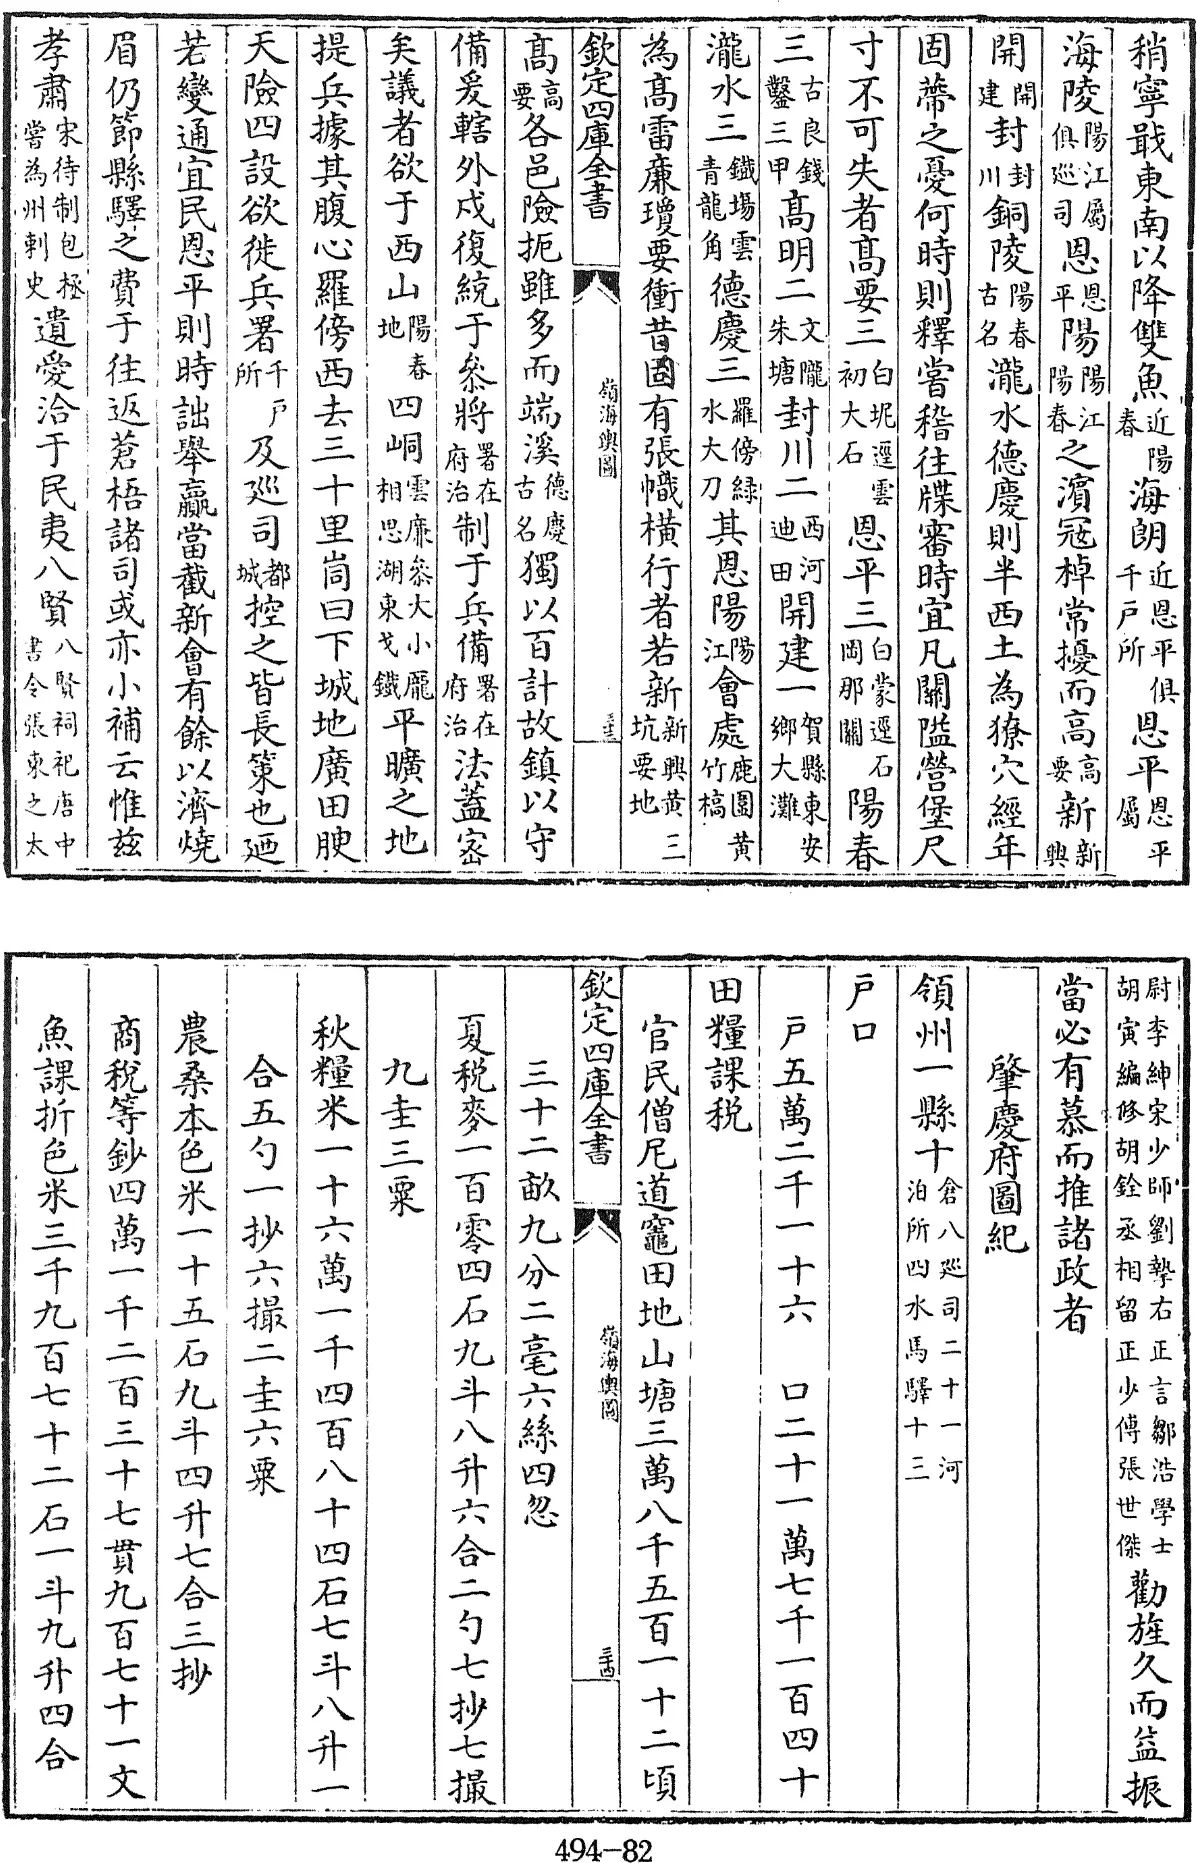 稍寧戢東南以降雙魚近陽春海朗近恩平俱千戶所恩平恩平屬
海陵陽江屬俱巡司恩恩平陽陽江陽春之濱寇棹常擾而高高要新新興
開開建封封川銅陵陽春古名瀧水德慶則半西土為獠穴經年
固蔕之憂何時則釋嘗稽往牒審時宜凡關隘營堡尺
寸不可失者髙要三白坭逕雲初大石恩平三白蒙逕石岡那關陽春
三古良錢鑿三甲髙明二文隴朱塘封川二西河迪田開建一賀縣東安鄉大灘
瀧水三鐵場雲青龍角德慶三羅傍緑水大刀其恩陽陽江會處鹿圍黄竹槁
為髙雷亷瓊要衝昔固有張幟橫行者若新新興黄三坑要地
欽定四庫全書
嶺海輿圖
三十三
髙高要各邑險扼雖多而端溪德慶古名獨以百計故鎮以守
備爰轄外戍復統于叅將署在府治制于兵備署在府治法蓋宻
矣議者欲于西山陽春地四峒雲亷叅大小龎相思湖東戈鐵平曠之地
提兵據其腹心羅傍西去三十里峝曰下城地廣田腴
天險四設欲徙兵署千戶所及廵司都城控之皆長策也廼
若變通宜民恩平則時詘舉贏當截新會有餘以濟燒
眉仍節縣驛之費于往返蒼梧諸司或亦小補云惟兹
孝肅宋待制包拯嘗為州刺史遺愛洽于民夷八賢八賢祠祀唐中書令張柬之太
尉李紳宋少師劉摯右正言鄒浩學士胡寅編修胡銓丞相留正少傅張世傑勸旌久而益振
當必有慕而推諸政者
肇慶府圖紀
領州一縣十倉八廵司二十一河泊所四水馬驛十三
戶口
戶五萬二千一十六　口二十一萬七千一百四十
田糧課税
官民僧尼道竈田地山塘三萬八千五百一十二頃
欽定四庫全書
嶺海輿圖
三十四
三十二畝九分二毫六絲四忽
夏税麥一百零四石九斗八升六合二勺七抄七撮
九圭三粟
秋糧米一十六萬一千四百八十四石七斗八升一
合五勺一抄六撮二圭六粟
農桑本色米一十五石九斗四升七合三抄
商税等鈔四萬一千二百三十七貫九百七十一文
魚課折色米三千九百七十二石一斗九升四合
494-82